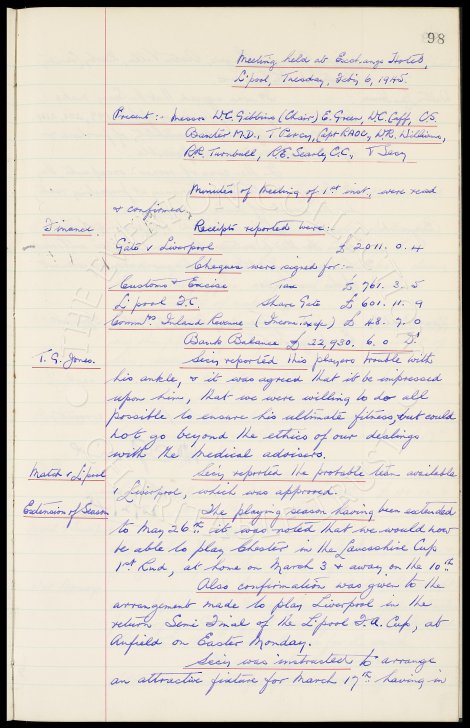 98
Meeting held at Exchange Hotel,
L'pool, Tuesday, Feby 6, 1945.
Present:- Messrs W.C. Gibbins (Chair) E. Green, W.C. Cuff, C.S.
Baxter M.D., T Percy, Capt RAOC, W.R. Williams,
R.R. Turnbull, R.E. Searle C.C., & Secy
Minutes of Meeting of 1st inst, were read
& confirmed.
Finance. Receipts reported were:-
Gate v Liverpool £ 2011. 0. 4
Cheques were signed for:-
Customs & Excise Tax £ 761. 3. 5
L'pool F.C. Share Gate £ 601. 11. 9
Commrs Inland Revenue (Income Tax) £ 48. 7. 0
Bank Balance £ 22,930. 6. 0
T.G. Jones. Secy reported this players trouble with
his ankle, & it was agreed that it be impressed
upon him, that we were willing to do all
possible to ensure his ultimate fitness, but could
not go beyond the ethics of our dealings
with the medical advisers.
Match v L'pool Secy reported the probable team available
v Liverpool, which was approved.
Extension of Season The playing season having been extended
to May 26th it was noted that we would now
be able to play Chester in the Lancashire Cup
1st Rnd, at home on March 3 & away on the 10th
Also confirmation was given to the
arrangement made to play Liverpool in the
return Semi Final of the L'pool F.A. Cup, at
Anfield on Easter Monday.
Secy was instructed to arrange
an attractive fixture for March 17th having in